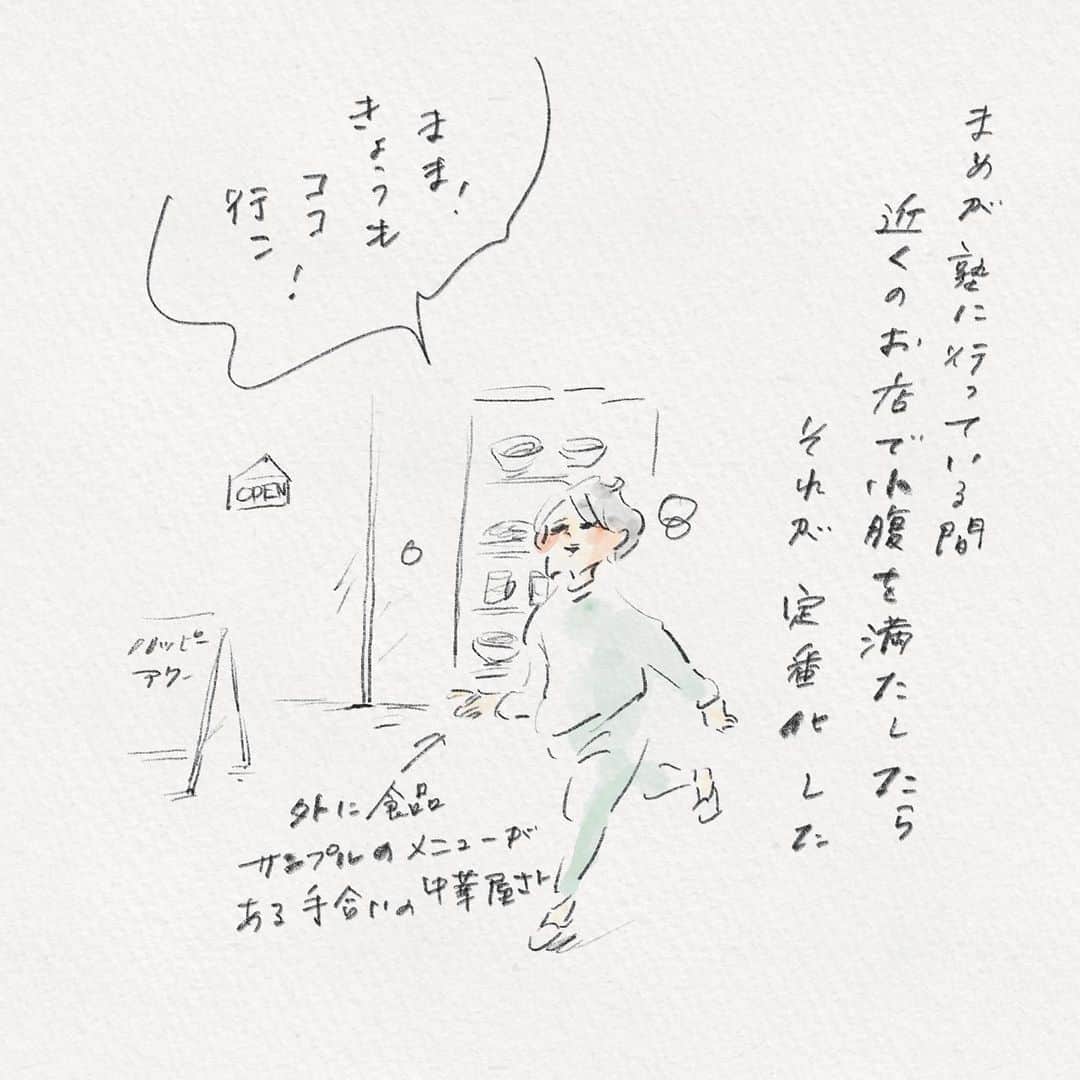 まめが塾に行っている間
近くのお店で小腹を満たしたら
それが定番化した
まま!
きょうも
ココ
行こ!
OPEN
ハッピー
アワー
外に食品
サンプルのメニューが
ある手合いの中華屋さん